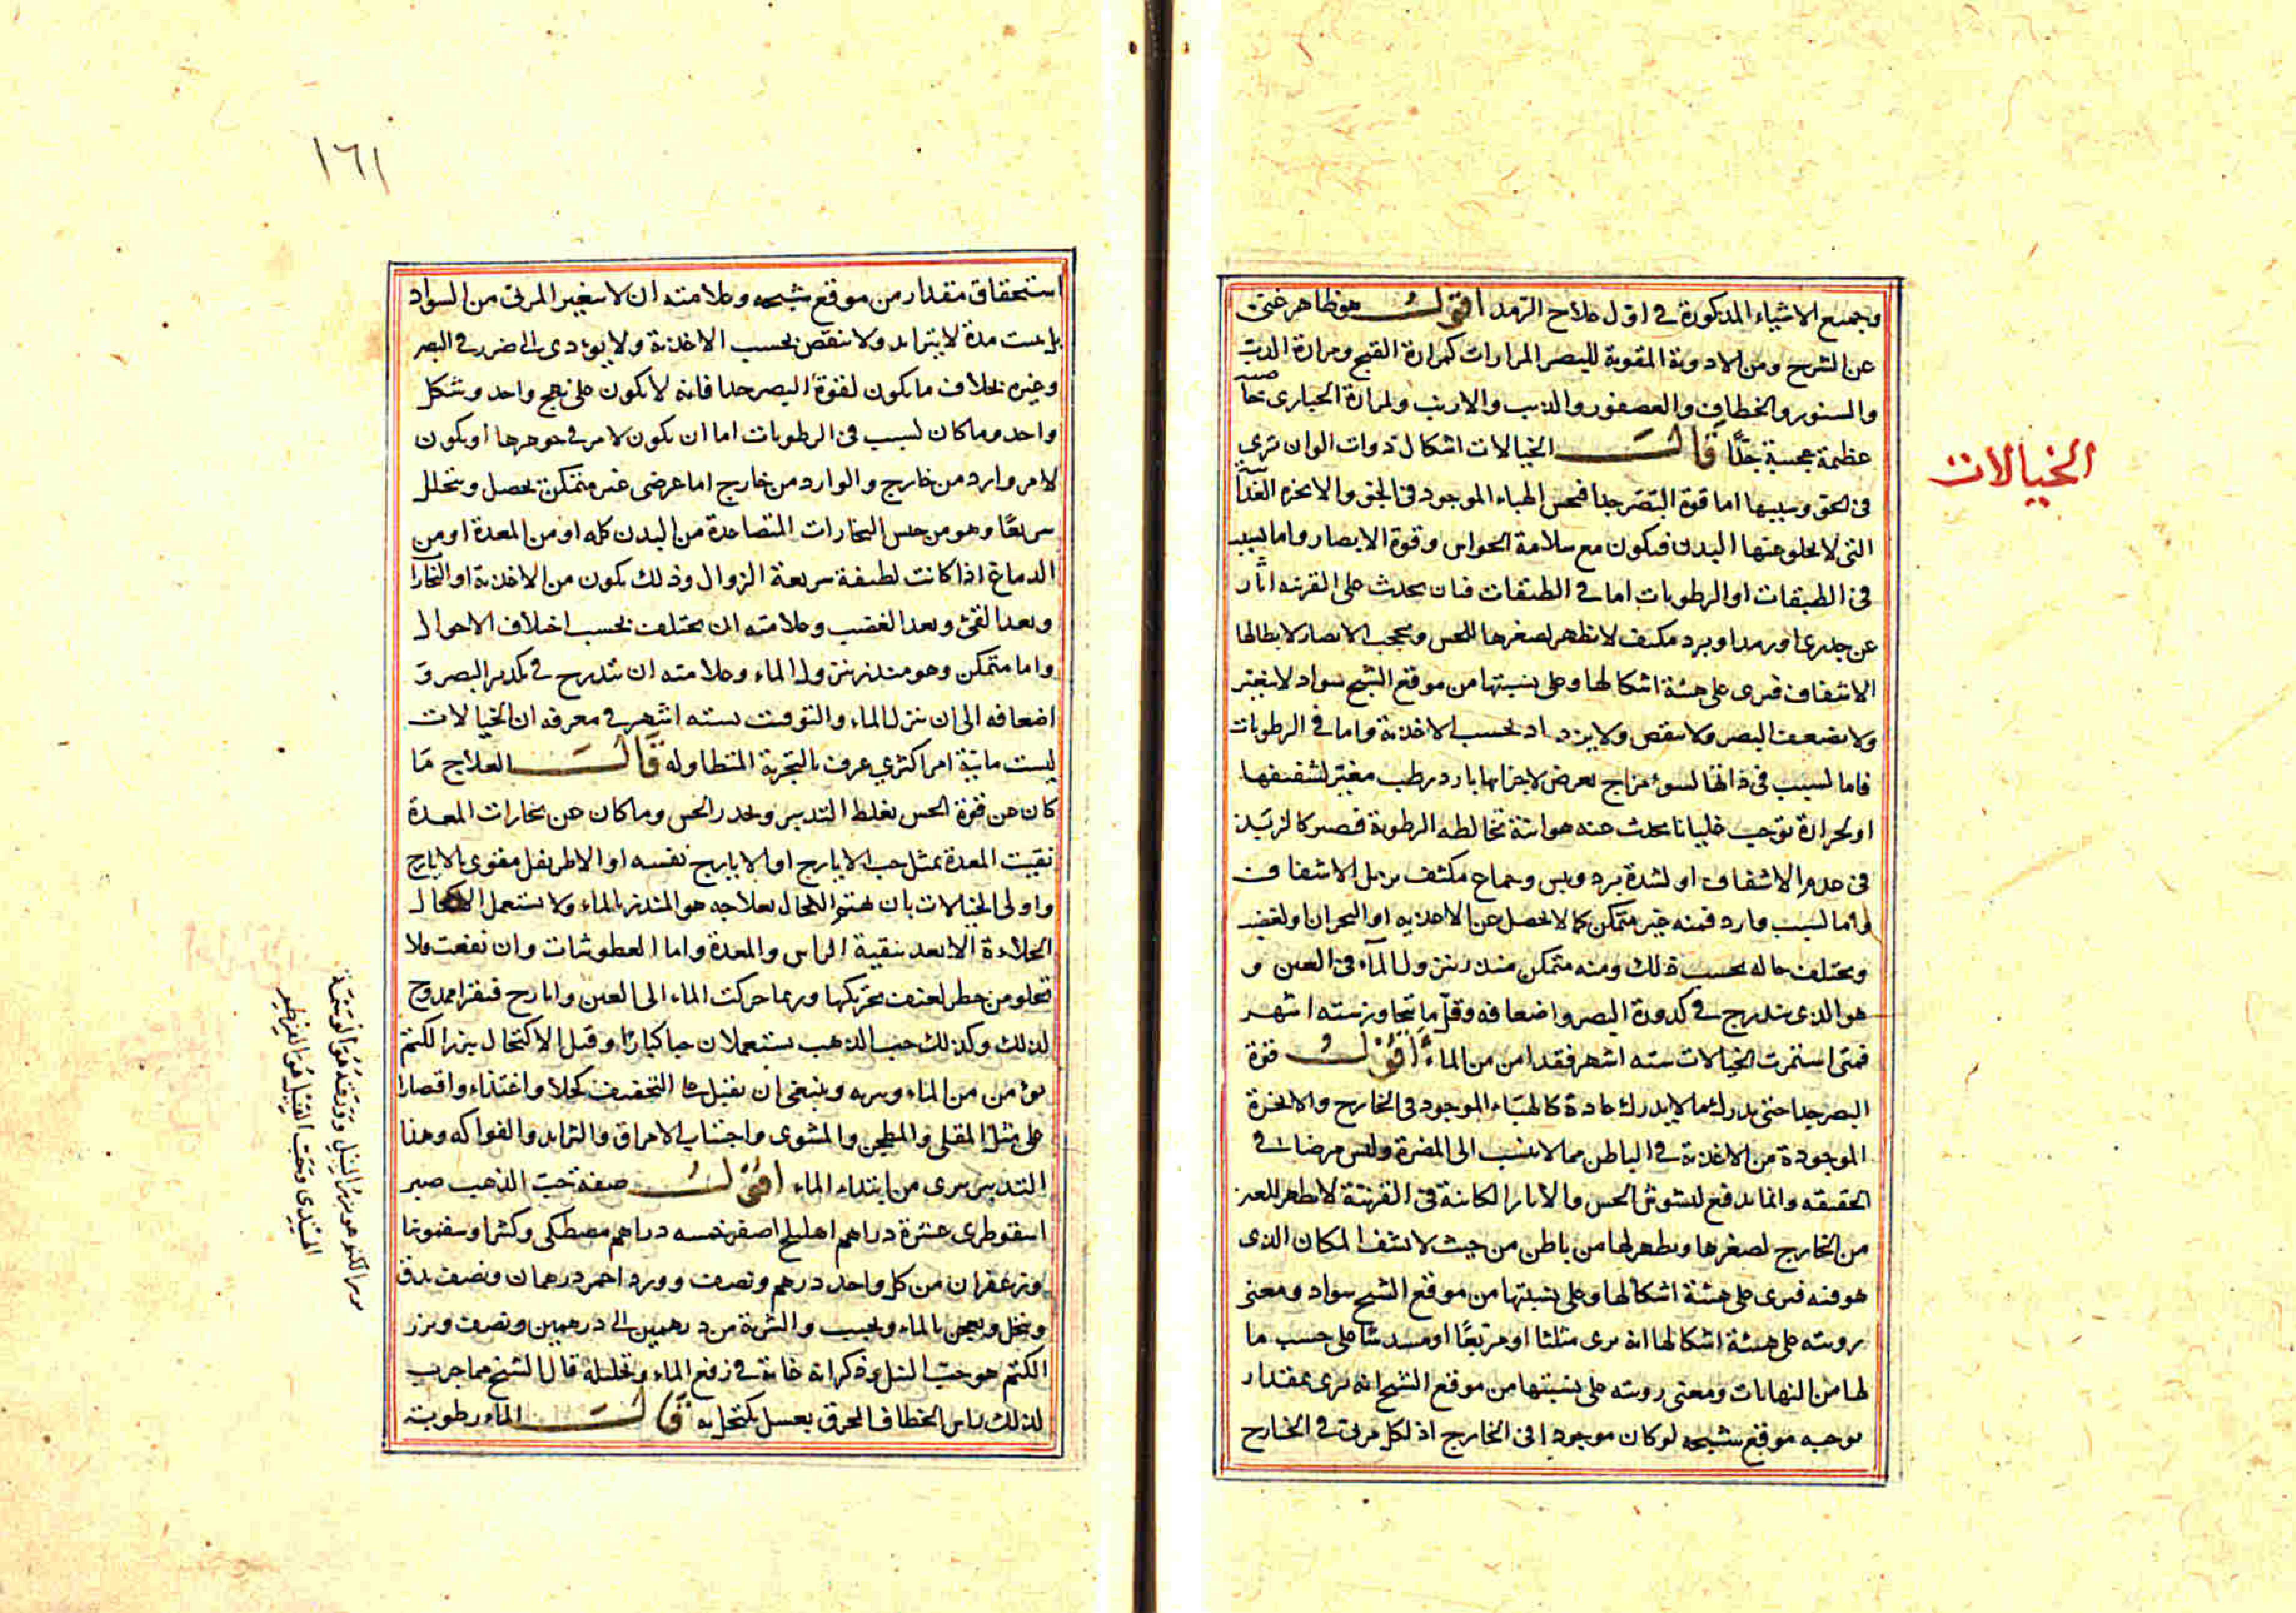 وجميع الاشياء المذكورة في اول علاج الرمد اقول هو ظاهر غني
عن الشرح ومن الادوية المقوية للبصر المرارات كمرارة القبج ومرارة الدب
والسنور والخطاف والعصفور والذيب والارنب ولمرارة الحبارى خاصية
عظيمة عجيبة جدًا قال الخيالات اشكال ذوات الوان ترى
في الجو وسببها اما قوة البصر جدا فيحس الهباء الموجود في الجو والابخرة الغذا
التي لا يخلو عنها البدن فيكون مع سلامة الحواس وقوة الابصار واما لسبب
في الطبقات او الرطوبات اما في الطبقات فبان يحدث على القرنيه اثار
عن جدري او رمد او برد مكثف لا يظهر لصغرها للحس ويحجب الابصار لابطالها
الاشفاف فيرى على هيئة اشكالها وعلى نسبتها من موقع الشبح سواد لا يتغير
ولا يضعف البصر ولا ينقص ولا يزداد بحسب الاغذية واما في الرطوبات
فاما لسبب في ذاتها لسوء مزاج يعرض لاجزائها بارد رطب مغير لشفيفها
او لحرارة توجب غليانا يحدث عنه هوائية تخالطه الرطوبة فيصير كالزبد
في عدم الاشفاف او لشدة برد ويبس وجماح مكثف يزيل الاشفاف
واما لسبب وارد فمنه غير متمكن كما لا يحصل عن الاغذيه او البحران او لغضب
ويختلف حاله بحسب ذلك ومنه متمكن منذر بنزول الماء في العين و
هو الذي يتدرج في كدورة البصر واضعافه وقل ما تتجاوز سته اشهر
فمتى استمرت الخيالات سته اشهر فقد امن من الماء اقول قوة
البصر جدا حتى يدرك ما لا يدرك عادة كالهباء الموجود في الخارج والابخرة
الموجودة من الاغذية في الباطن مما لا ينسب الى المضرة وليس مرضا في
الحقيقه وانما يدفع لتشوش الحس والاثار الكائنة في القرنية لا تظهر للعين
من الخارج لصغرها ويظهر لها من باطن من حيث لا يشف المكان الذي
هو فيه فيرى على هيئة اشكالها وعلى نسبتها من موقع الشبح سواد ومعنى
رويته على هيئة اشكالها انه يرى مثلثا او مربعًا او مسدسا على حسب ما
لها من النهايات ومعنى رويته على نسبتها من موقع الشبح انه يرى بمقدار
يوجبه موقع شبحه لو كان موجودا في الخارج اذ لكل مرئي في الخارج
الخيالات
١٦١
استحقاق مقدار من موقع شبحه وعلامته ان لا يتغير المرئي من السواد
بل يثبت مدة لا يتزايد ولا ينقص بحسب الاغذية ولا يؤدى الى ضرر في البصر
وغيره بخلاف ما يكون لقوة البصر جدا فانه لا يكون على نهج واحد وشكل
واحد وما كان لسبب في الرطوبات اما ان يكون لامر في جوهرها او يكون
لامر وارد من خارج والوارد من خارج اما عرضي غير متمكن يحصل ويتحلل
سريعًا وهو من جنس البخارات المتصاعدة من البدن كله او من المعدة او من
الدماغ اذا كانت لطيفة سريعة الزوال وذلك يكون من الاغذية او البخارات
وبعد القيء وبعد الغضب وعلامته ان يختلف بحسب اختلاف الاحوال
واما متمكن وهو منذر بنزول الماء وعلامته ان يتدرج في تكدير البصر و
اضعافه الى ان ينزل الماء والتوقيت بسته اشهر في معرفه ان الخيالات
ليست مائية امر اكثري عرف بالتجربة المتطاوله قال العلاج ما
كان عن قوة الحس يغلظ التدبير ويخدر الحس وما كان عن بخارات المعدة
نقيت المعدة بمثل حب الايارج او الايارج نفسه او الاطريفل مقوى بالايارج
واولى الخيالات بان يهتم لحال بعلاجه هو المنذر بالماء ولا يستعمل الاكحال
الجلاءة الا بعد تنقية الراس والمعدة واما العطوسات وان نفعت فلا
تخلو من خطر لعنف تحريكها وربما حركت الماء الى العين وايارج فيقرا ممدوح
لذلك وكذلك حب الذهب يستعملان حبا كبارًا وقبل الاكتحال ببزر الكتم
يؤمن من الماء ويبريه وينبغي ان يقبل على التخفيف كحلا واغتذاء واقتصارا
على مثل المقلى والمطجن والمشوى واجتناب الامراق والثرايد والفواكه وهذا
التدبير يبرى من ابتداء الماء اقول صفة حب الذهب صبر
اسقوطرى عشرة دراهم اهليلج اصفر خمسه دراهم مصطكي وكثيرا وسقمونيا
وزعفران من كل واحد درهم ونصف وورد احمر درهمان ونصف يدق
وينخل ويعجن بالماء ويحبب والشربة من درهمين الى درهمين ونصف وبزر
الكتم هو حب النيل وذكر انه غاية في رفع الماء وتحليله قال الشيخ مما جرب
لذلك راس الخطاف المحرق بعسل يكتحل به قال الماء رطوبة
بزر الكتم هو بزر النيل وورقه هو الوسمة
الهندي وحب النيل هو القرطم